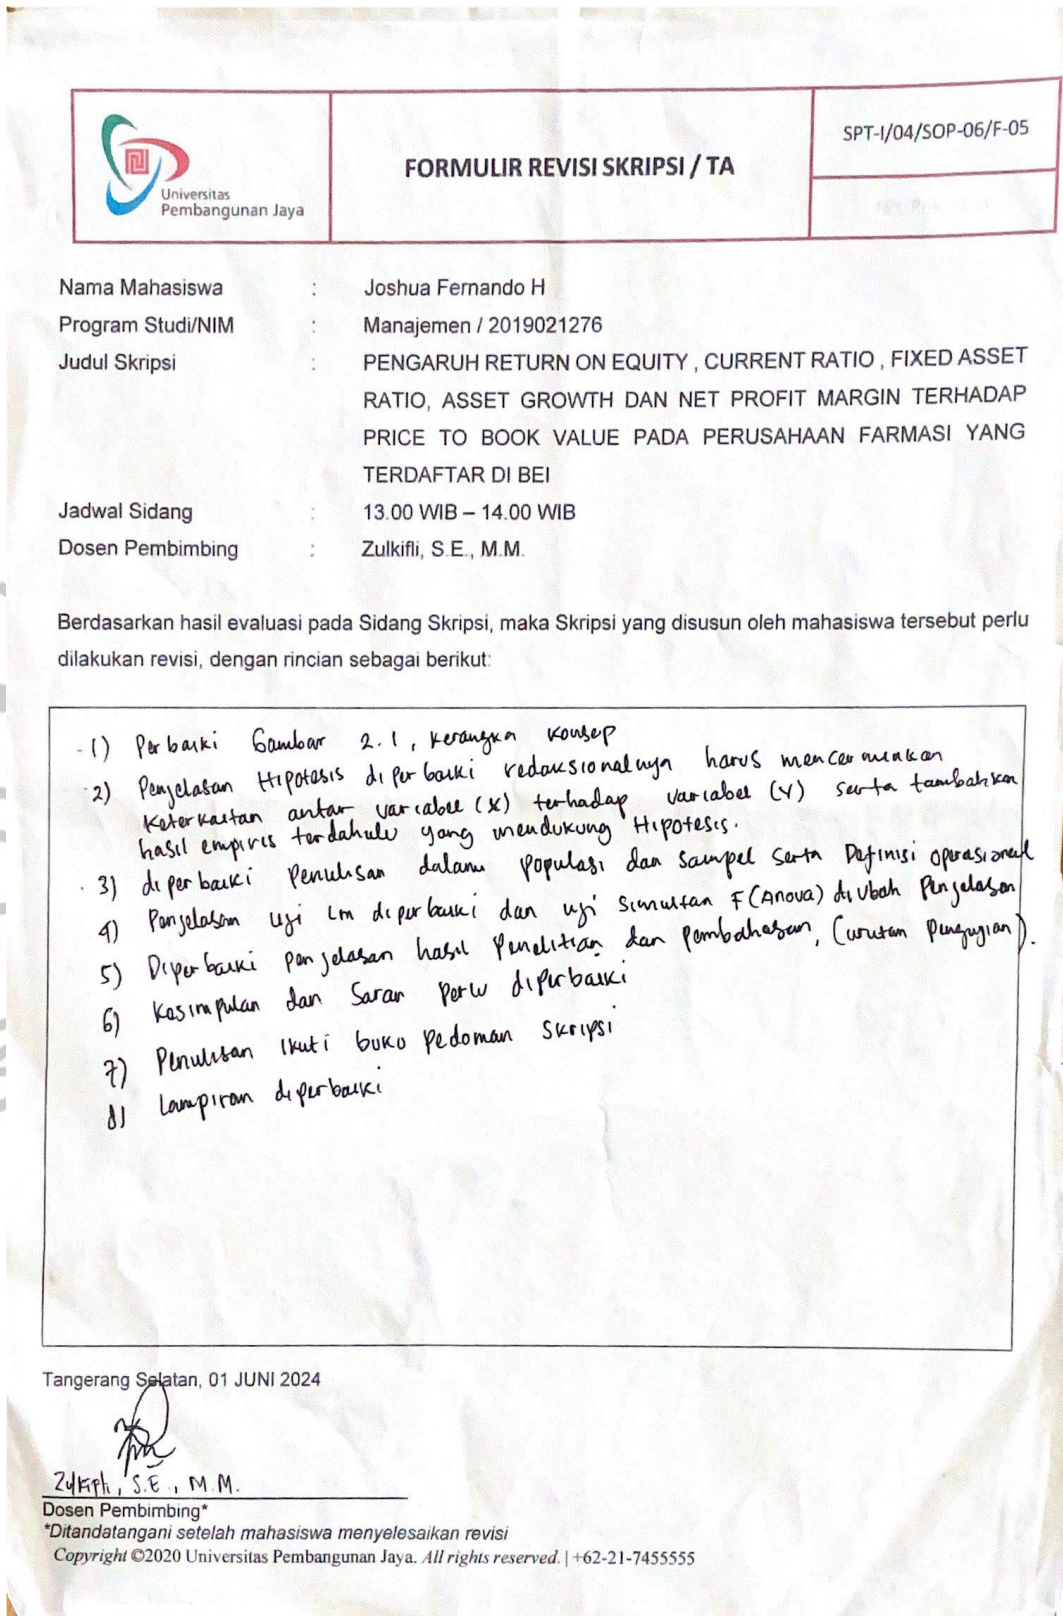 Universitas
Pembangunan Jaya
FORMULIR REVISI SKRIPSI / TA
SPT-I/04/SOP-06/F-05
Nama Mahasiswa : Joshua Fernando H
Program Studi/NIM : Manajemen / 2019021276
Judul Skripsi : PENGARUH RETURN ON EQUITY , CURRENT RATIO , FIXED ASSET
RATIO, ASSET GROWTH DAN NET PROFIT MARGIN TERHADAP
PRICE TO BOOK VALUE PADA PERUSAHAAN FARMASI YANG
TERDAFTAR DI BEI
Jadwal Sidang : 13.00 WIB – 14.00 WIB
Dosen Pembimbing : Zulkifli, S.E., M.M.
Berdasarkan hasil evaluasi pada Sidang Skripsi, maka Skripsi yang disusun oleh mahasiswa tersebut perlu
dilakukan revisi, dengan rincian sebagai berikut:
1) Perbaiki Gambar 2.1, Kerangka Konsep
2) Penjelasan Hipotesis diperbaiki redaksionalnya harus mencerminkan
Keterkaitan antar variabel (X) terhadap variabel (Y) serta tambahkan
hasil empiris terdahulu yang mendukung Hipotesis.
3) diperbaiki Penulisan dalam Populasi dan sampel serta Definisi operasional
4) Penjelasan uji LM diperbaiki dan uji simultan F (Anova) diubah Penjelasan
5) Diperbaiki penjelasan hasil Penelitian dan pembahasan, (urutan Pengujian).
6) Kesimpulan dan Saran Perlu diperbaiki
7) Penulisan Ikuti buku Pedoman Skripsi
8) Lampiran diperbaiki
Tangerang Selatan, 01 JUNI 2024
Zulkifli, S.E., M.M.
Dosen Pembimbing*
*Ditandatangani setelah mahasiswa menyelesaikan revisi
Copyright ©2020 Universitas Pembangunan Jaya. All rights reserved. | +62-21-7455555